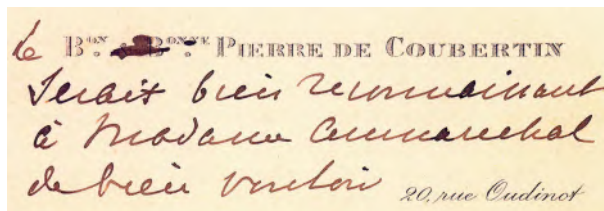 le Bᵒⁿ & Bᵒⁿⁿᵉ Pierre de Coubertin
serait bien reconnaissant
à Madame
de bien vouloir
20, rue Oudinot